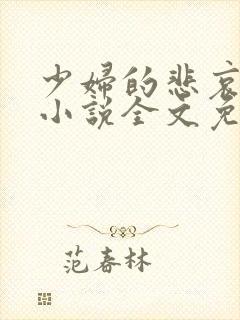 少婦的悲哀
小説全文免
范春林